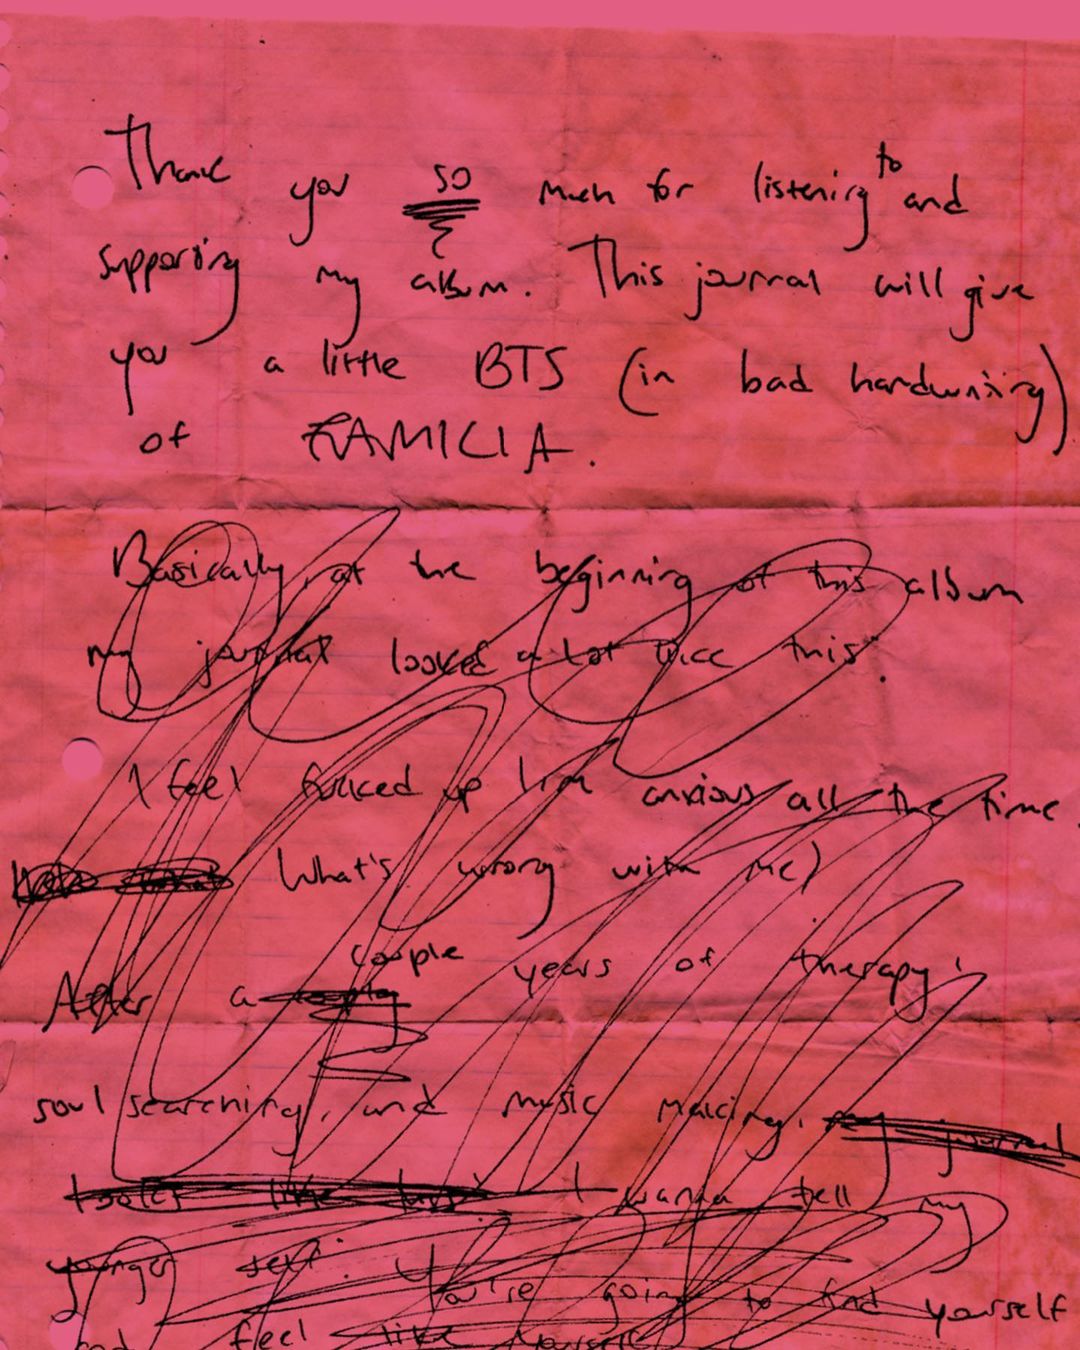 Thank you so much for listening to and
supporting my album. This journal will give
you a little BTS (in bad handwriting)
of FAMILIA.
Basically, at the beginning of this album
my journal looked a lot like this:
I feel fucked up I'm anxious all the time.
What's wrong with me)
couple years of therapy,
After a
soul searching, and music making, my journal
looked like this: I wanna tell my
younger self: You're going to find yourself
and feel like yourself